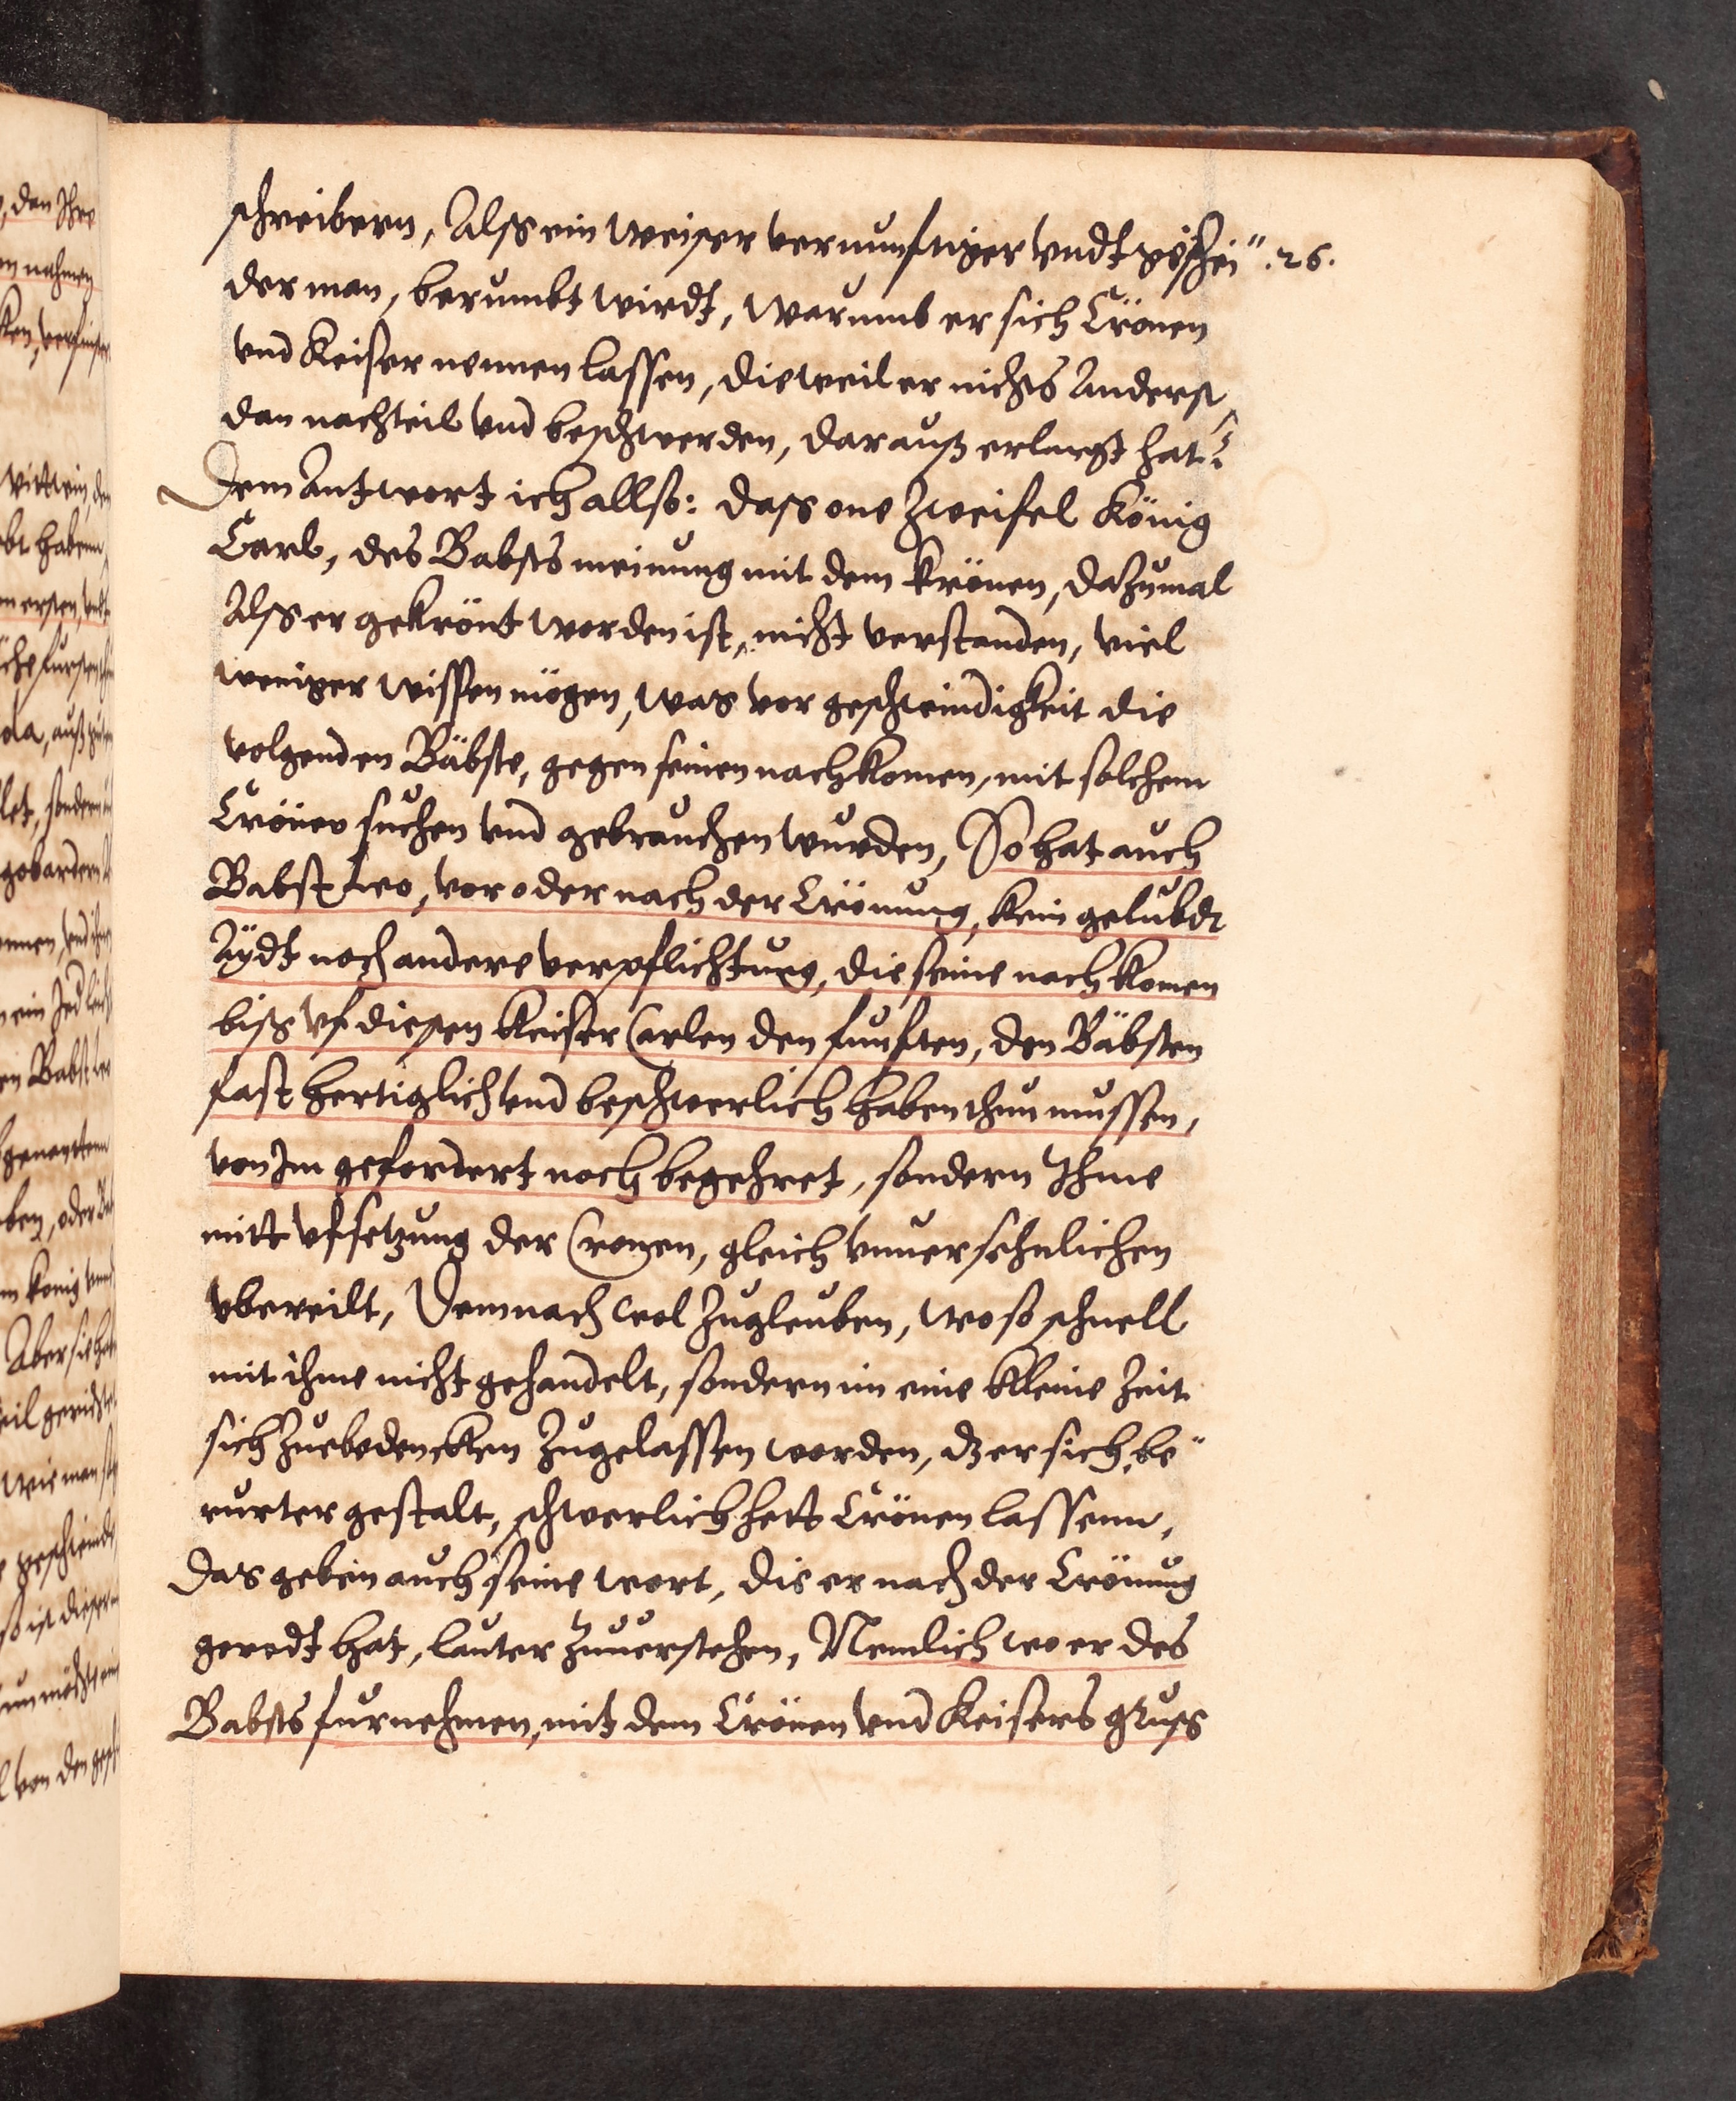 schreibern, Alss ein weiser vernunftiger vndt gescheị" .26.
der man, berumbt wirdt, warumb er sich Crönen
vnd Keiser nennen lassen, dieweil er nichts Anderst
dan nachteil vnd beschwerden, darauß erlangt hat?
Dem Antwort ich allso: dass one Zweifel König
Carl, des Babsts meinung mit dem krönen, dazumal
Alss er gekrönt worden ist, nicht verstanden, viel
weniger wissen mögen, was vor geschwindigkeit die
volgenden Bäbste, gegen seinen nachkomen, mit solchem
Crönen suchen vnd gebrauchen wurden, So hat auch
Babst Leo, vor oder nach der Crönung, kein gelubdt
Aÿdt noch andere verpflichtung, die seine nachkomen
biss vf diesen Keiser Carlen den funften, den Bäbsten
fast hertiglich vnd beschwerlich haben thun mussen,
von Im gefordert noch begehret, sondern Ihme
mitt vfsetzung der Cronen, gleich vnuersehnlichen
vbereilt, Demnach wol Zugleuben, wo so schnell
mit ihme nicht gehandelt, sondern im eine kleine Zeit
sich Zuebedencken Zugelassen worden, dz er sich, be"
rurter gestalt, schwerlich hett Crönen lassenn,
Das geben auch seine wort, die er nach der Crönung
geredt hat, lauter Zuuerstehen, Nemlich wo er des
Babsts furnehmen, mit dem Crönen vnd Keisers gruss